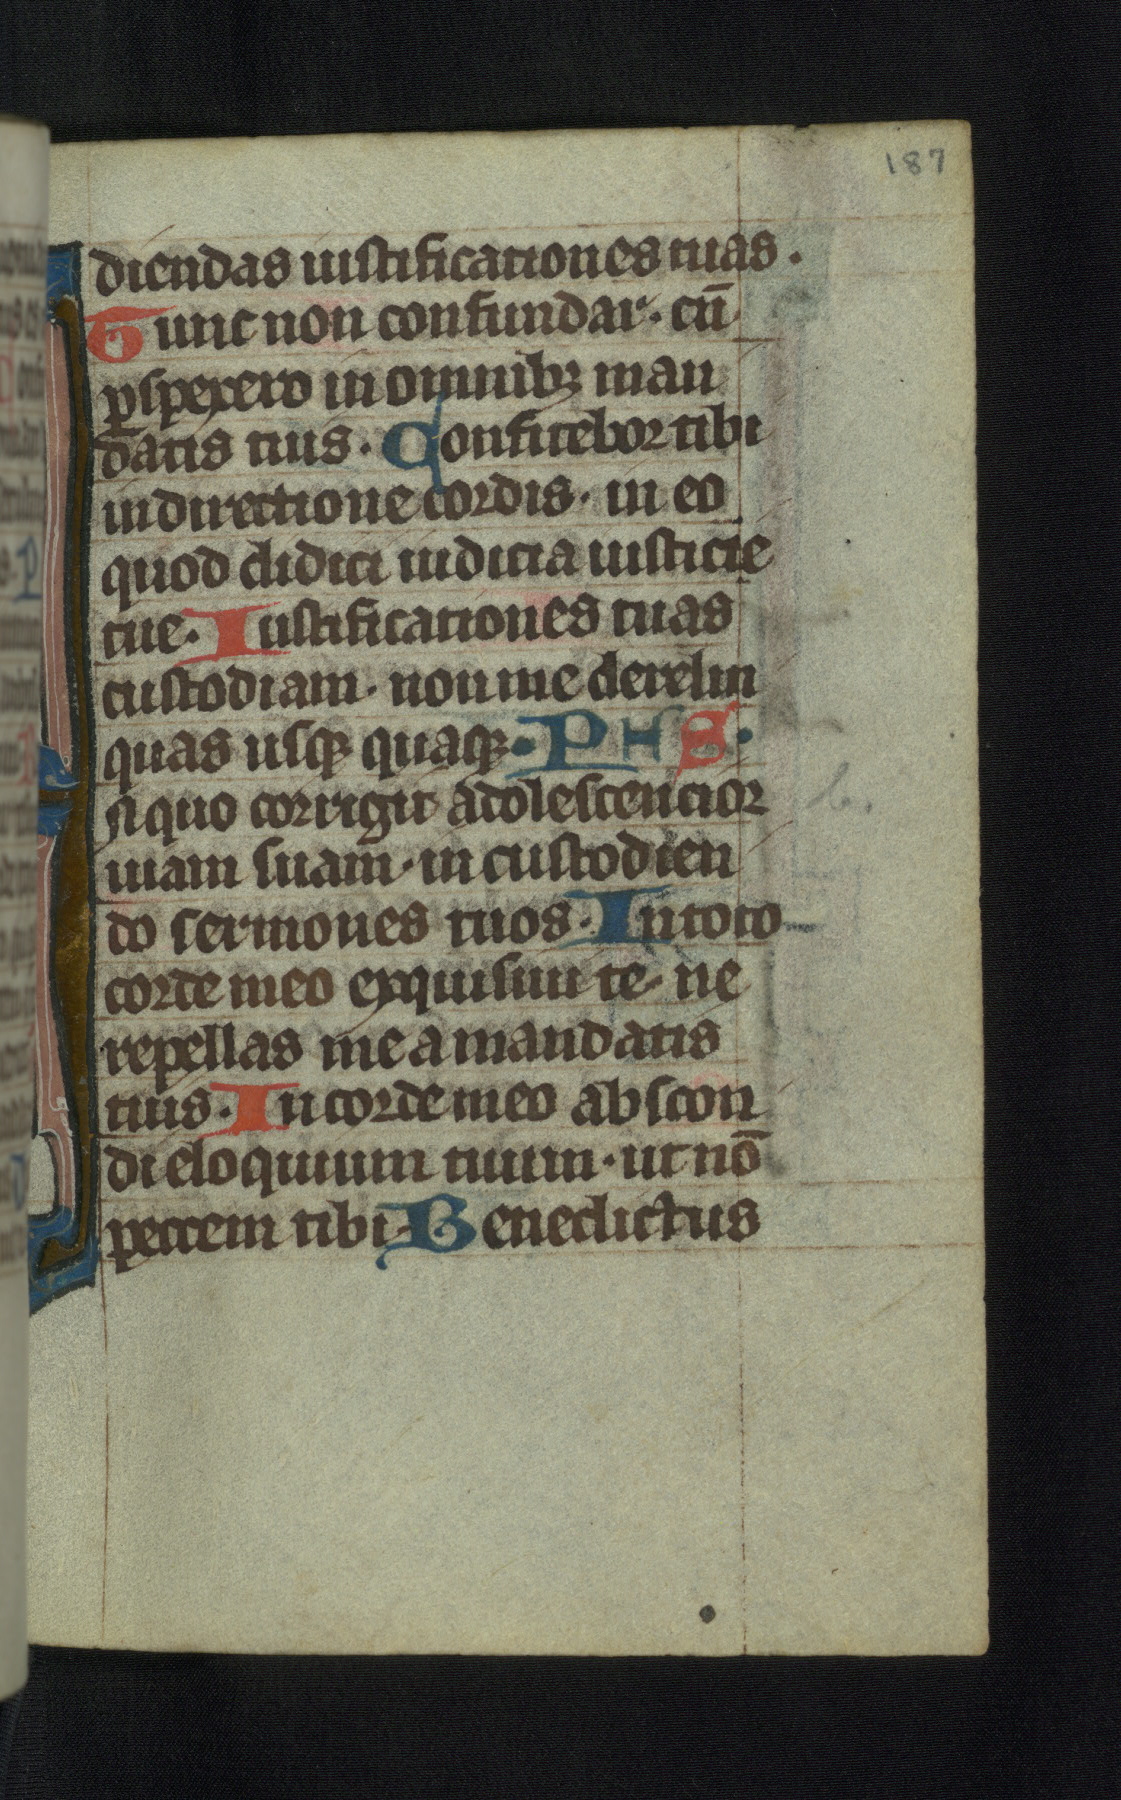 187
diendas iustificationes tuas.
Tunc non confundar. cū
ꝑspexero in omnibꝫ man
datis tuis. Confitebor tibi
in directione cordis. in eo
quod didici iudicia iusticie
tue. Iustificationes tuas
custodiam. non me derelin
quas usqꝫ quaqꝫ. PHS.
In quo corrigit adolescencior
uiam suam. in custodien
do sermones tuos. In toto
corde meo exquisiui te. ne
repellas me a mandatis
tuis. In corde meo abscon
di eloquium tuum. ut nō
peccem tibi. Benedictus